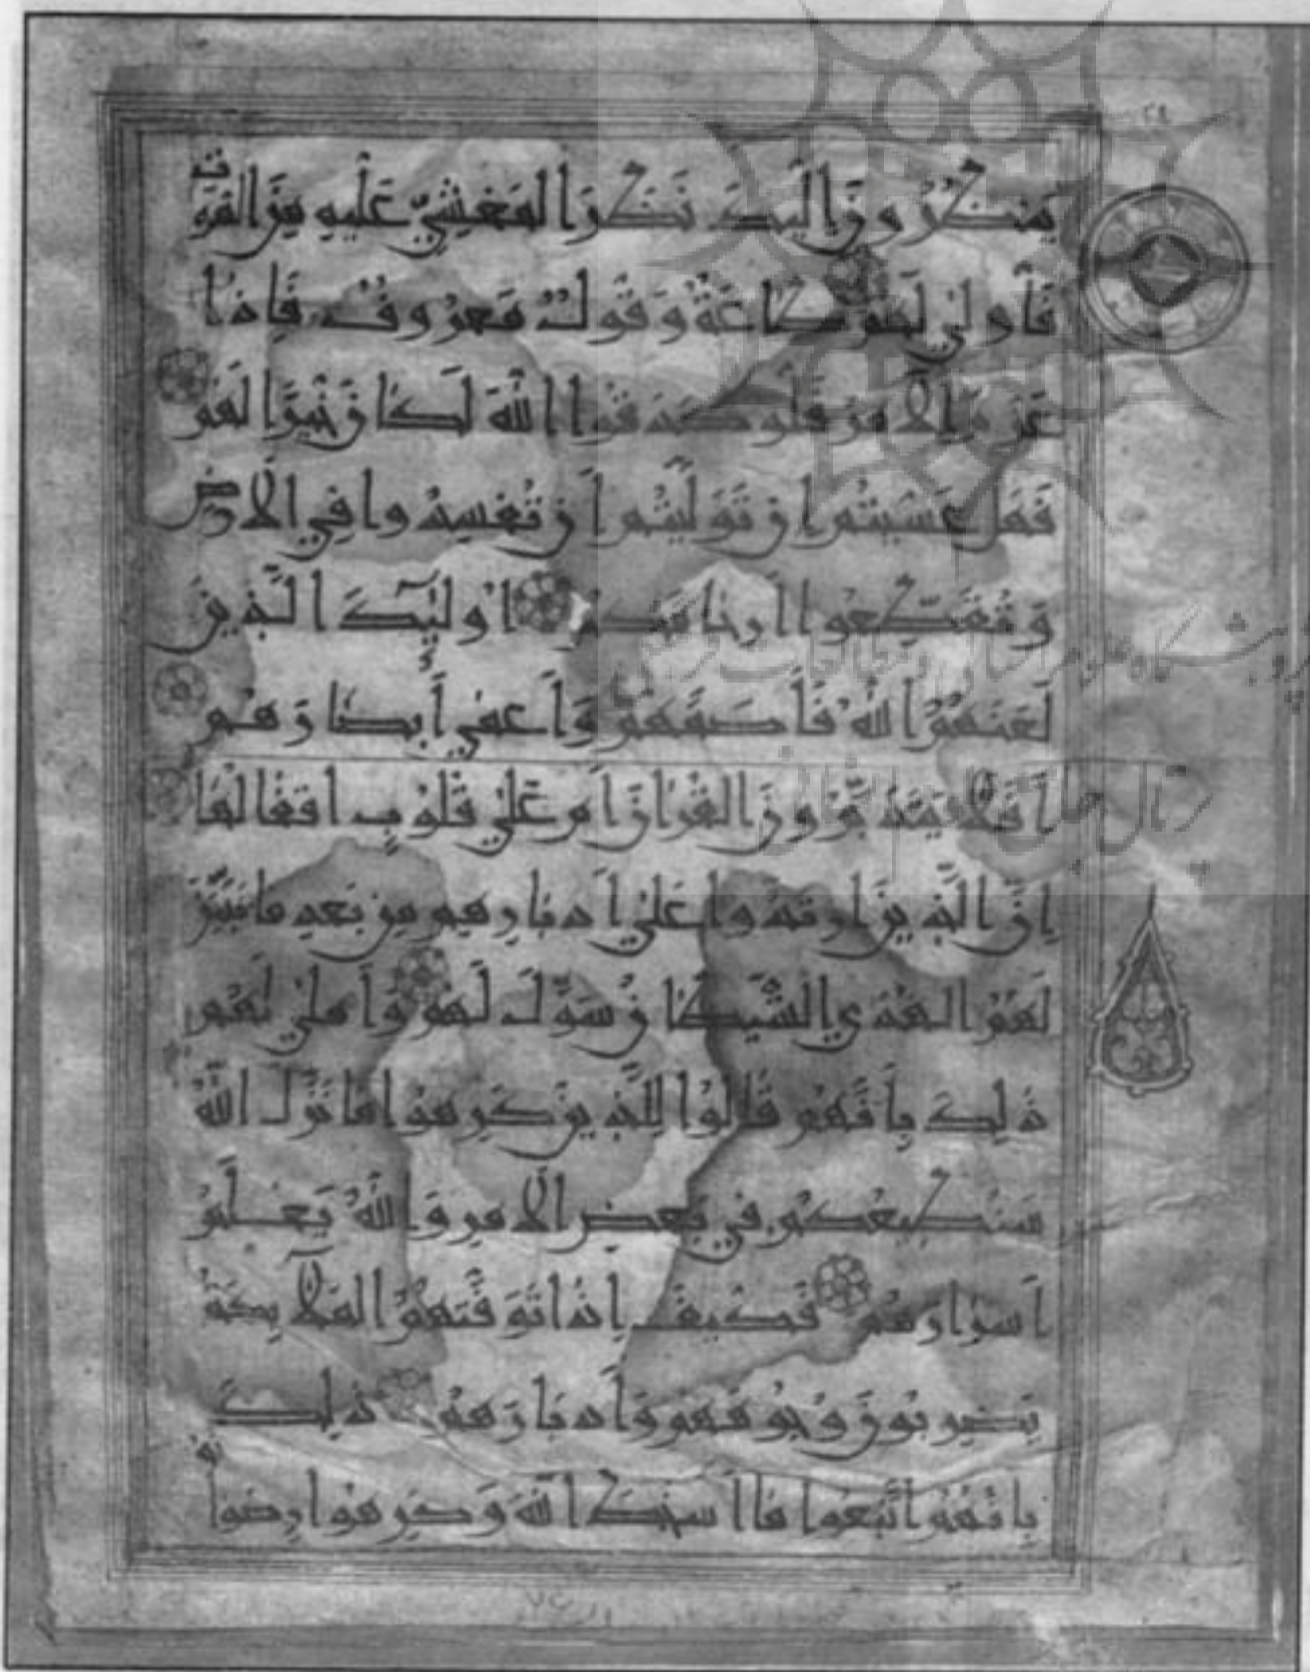 ينظرون اليك نظر المغشي عليه من الموت
فاولى لهم طاعة وقول معروف فاذا
عزم الامر فلو صدقوا الله لكان خيرا لهم
فهل عسيتم ان توليتم ان تفسدوا في الارض
وتقطعوا ارحامكم اولئك الذين
لعنهم الله فاصمهم واعمى ابصارهم
افلا يتدبرون القران ام على قلوب اقفالها
ان الذين ارتدوا على ادبارهم من بعد ما تبين
لهم الهدى الشيطان سول لهم واملى لهم
ذلك بانهم قالوا للذين كرهوا ما نزل الله
سنطيعكم في بعض الامر والله يعلم
اسرارهم فكيف اذا توفتهم الملائكة
يضربون وجوههم وادبارهم ذلك
بانهم اتبعوا ما اسخط الله وكرهوا رضوانه
پژوهشگاه علوم انسانی و مطالعات فرهنگی
پرتال جامع علوم انسانی